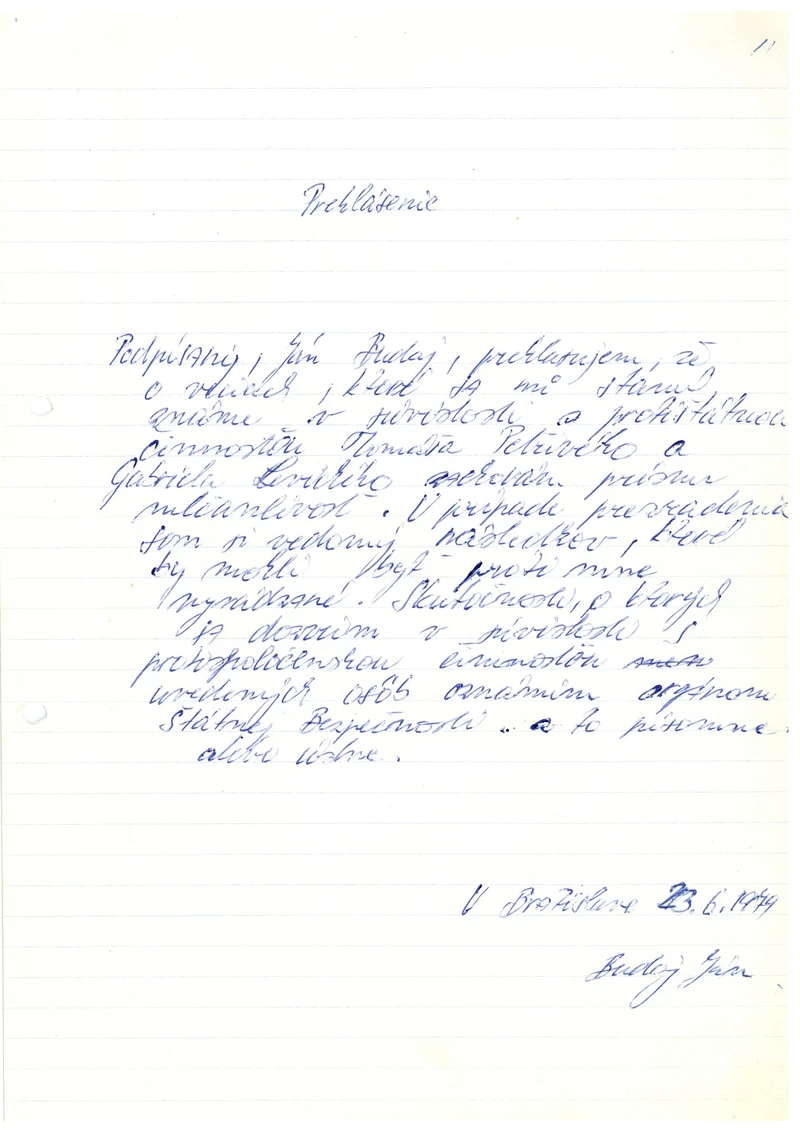 11
Prehlásenie
Podpísaný, Ján Budaj, prehlasujem, že
o veciach, ktoré sa mi stanú
známe v súvislosti s protištátnou
činnosťou Tomáša Petřivého a
Gabriela Levického zachovám prísnu
mlčanlivosť. V prípade prezradenia
som si vedomý následkov, ktoré
by mohli byť proti mne
vyvodzané. Skutočnosti, o ktorých
sa dozviem v súvislosti s
protispoločenskou činnosťou
uvedených osôb oznámim orgánom
Štátnej Bezpečnosti .. a to písomne
alebo ústne.
V Bratislave 23.6.1979
Budaj Ján